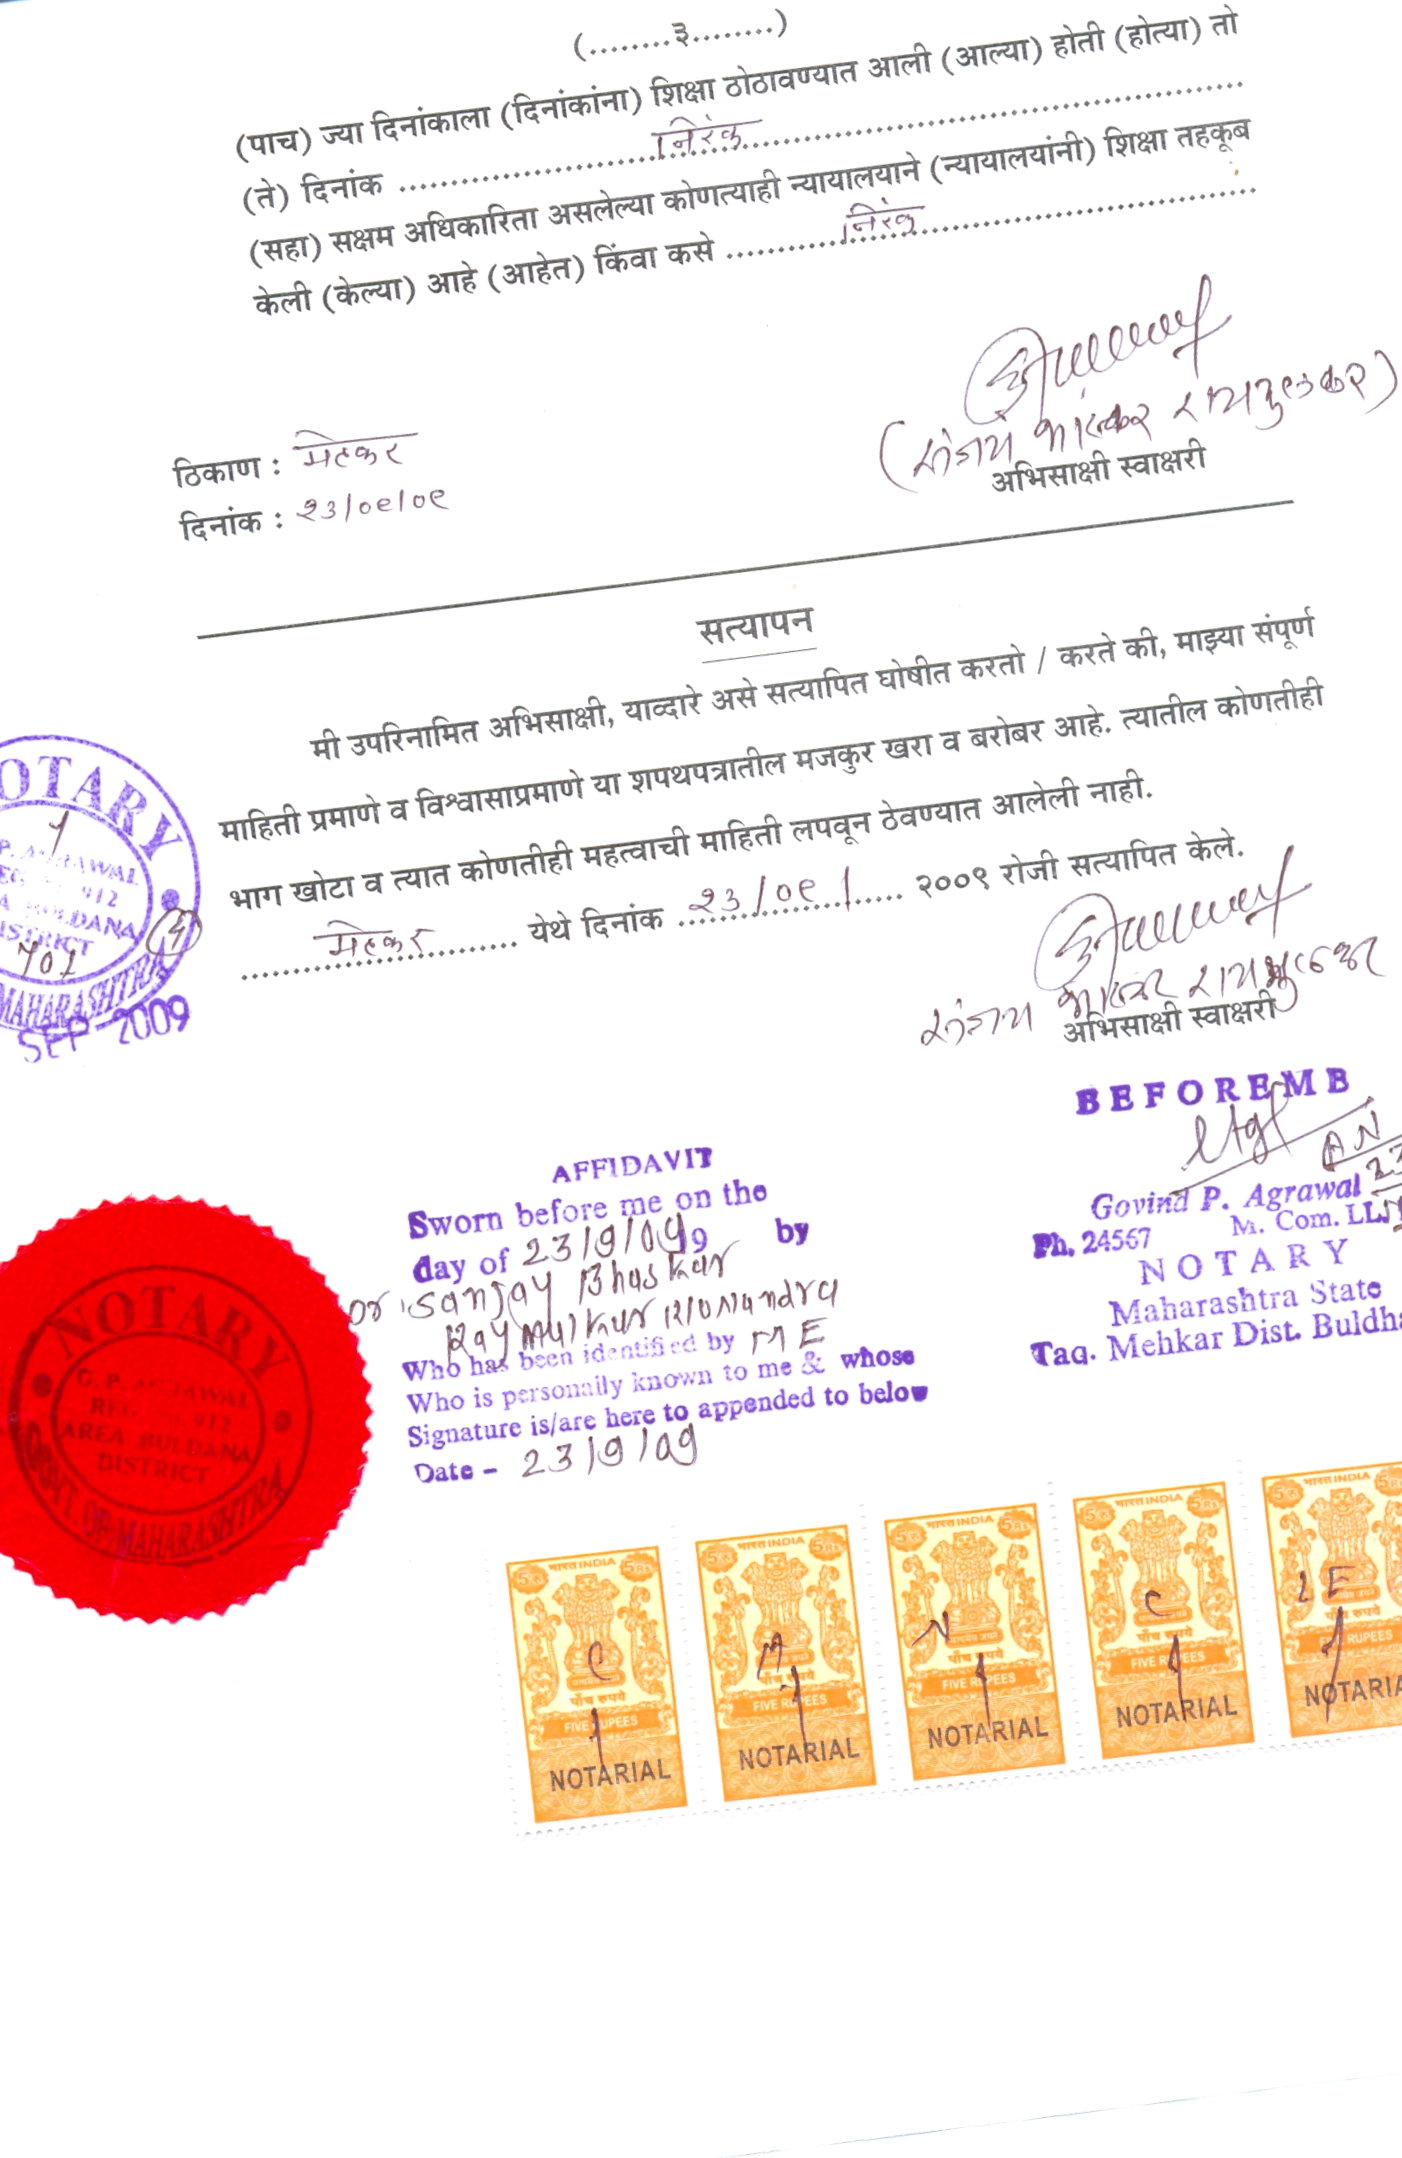 (.........३.........)
(पाच) ज्या दिनांकाला (दिनांकांना) शिक्षा ठोठावण्यात आली (आल्या) होती (होत्या) तो
(ते) दिनांक ........ निरंक ........
(सहा) सक्षम अधिकारिता असलेल्या कोणत्याही न्यायालयाने (न्यायालयांनी) शिक्षा तहकूब
केली (केल्या) आहे (आहेत) किंवा कसे ........ निरंक ........
(संजय भास्कर रायमुलकर)
अभिसाक्षी स्वाक्षरी
ठिकाण : मेहकर
दिनांक : २३/०९/०९
सत्यापन
मी उपरिनामित अभिसाक्षी, याव्दारे असे सत्यापित घोषीत करतो / करते की, माझ्या संपूर्ण
माहिती प्रमाणे व विश्वासाप्रमाणे या शपथपत्रातील मजकुर खरा व बरोबर आहे. त्यातील कोणतीही
भाग खोटा व त्यात कोणतीही महत्वाची माहिती लपवून ठेवण्यात आलेली नाही.
........ मेहकर ........ येथे दिनांक २३/०९/ ........ २००९ रोजी सत्यापित केले.
संजय भास्कर रायमुलकर
अभिसाक्षी स्वाक्षरी
NOTARY
G. P. AGRAWAL
912
BULDANA
DISTRICT
701
MAHARASHTRA
SEP 2009
BEFORE MB
Govind P. Agrawal
M. Com. LL
Ph. 24567
NOTARY
Maharashtra State
Taq. Mehkar Dist. Buldha
AFFIDAVIT
Sworn before me on the
day of 23/9/09 9 by
Sanjay Bhaskar
Raymulkar R/o
Who has been identified by ME
Who is personally known to me & whose
Signature is/are here to appended to below
Date - 23/9/09
NOTARY
G. P. AGRAWAL
REG. No. 912
AREA BULDANA
DISTRICT
GOVT. OF MAHARASHTRA
भारत INDIA 5 रु 5 Rs पाँच रुपये FIVE RUPEES NOTARIAL C
भारत INDIA 5 रु 5 Rs पाँच रुपये FIVE RUPEES NOTARIAL A
भारत INDIA 5 रु 5 Rs पाँच रुपये FIVE RUPEES NOTARIAL N
भारत INDIA 5 रु 5 Rs पाँच रुपये FIVE RUPEES NOTARIAL C
भारत INDIA 5 रु 5 Rs पाँच रुपये RUPEES NOTARIA LE